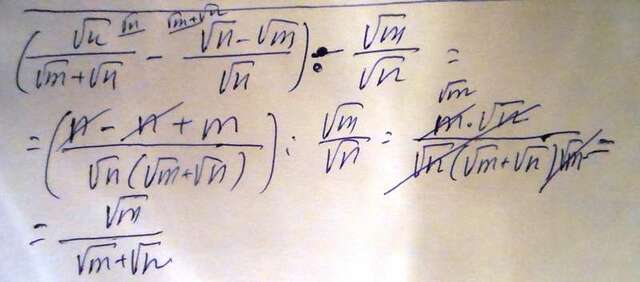 (√n^{√n}/(√m+√n) - (√n-√m)^{√m+√n}/√n) : √m/√n =
= (n - n + m)/(√n(√m+√n)) : √m/√n = √m m·√n/(√n(√m+√n)√m) =
= √m/(√m+√n)